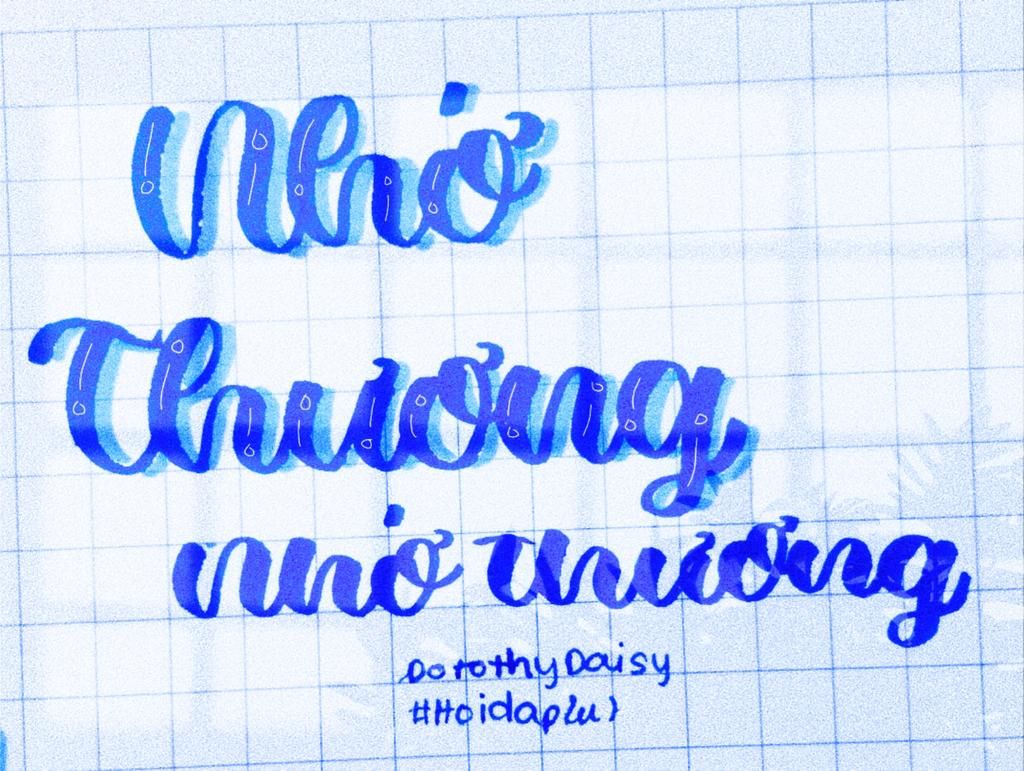 Nhớ
Thương
nhớ thương
DorothyDaisy
#Hoidap{u}